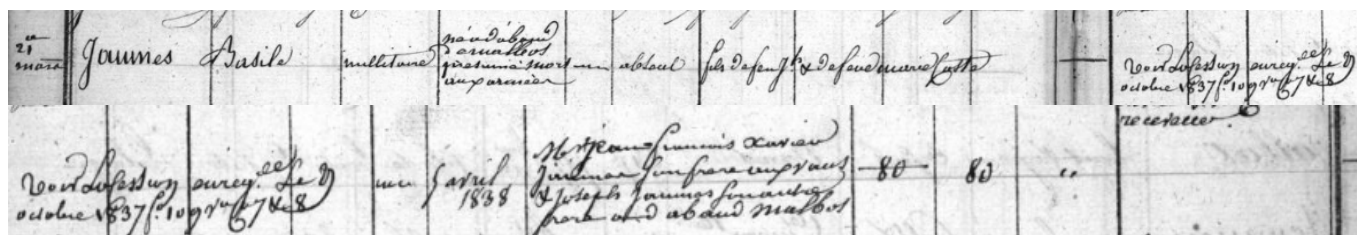 21
mars
Jaumes Basile militaire né a d'abaud
d'arnalbos
présumé mort
aux armées
un absent fils de feu Jh & de feue marie Caste
voir la cession enreg.ee le 9
octobre 1837 f. 109 v. c. 7 & 8
voir la cession enreg.ee le 9
octobre 1837 f. 109 v. c. 7 & 8
5 avril
1838
Mr Jean françois Xavier
Jaumes son frère aux vans
& Joseph Jaumes son autre
frère au d abaud Malbos
80
80
"
receveur